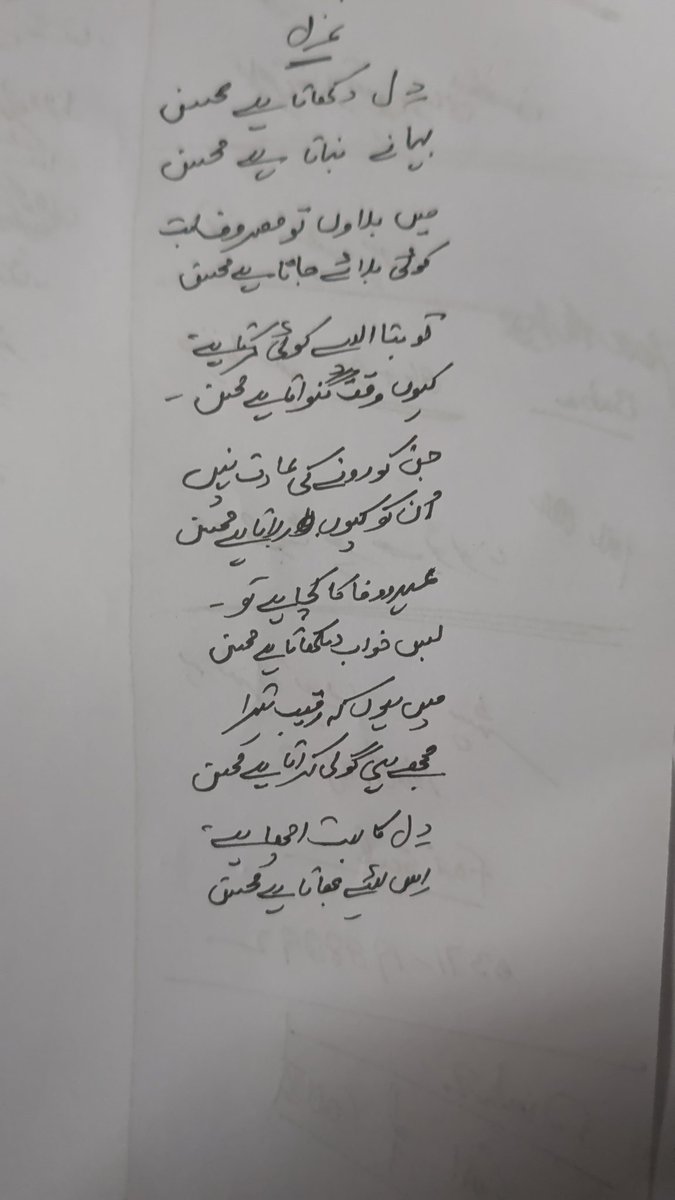 غزل
دل دکھاتا ہے محسن
بہانے بناتا ہے محسن
میں بلاوں تو مصروف بہت
کوئی بلائے جاتا ہے محسن
تو بتا ایسے کوئی کرتا ہے
کیوں وقت گنواتا ہے محسن
جن کو رونے کی عادت نہیں
اُن کو کیوں رلاتا ہے محسن
عہد وفا کا کچا ہے تو
بس خواب دیکھاتا ہے محسن
میں ہوں کہ رقیب تیرا
مجھے ہی گولی کراتا ہے محسن
دل کا بہت اچھا ہے
اِس لئیے بھاتا ہے محسن